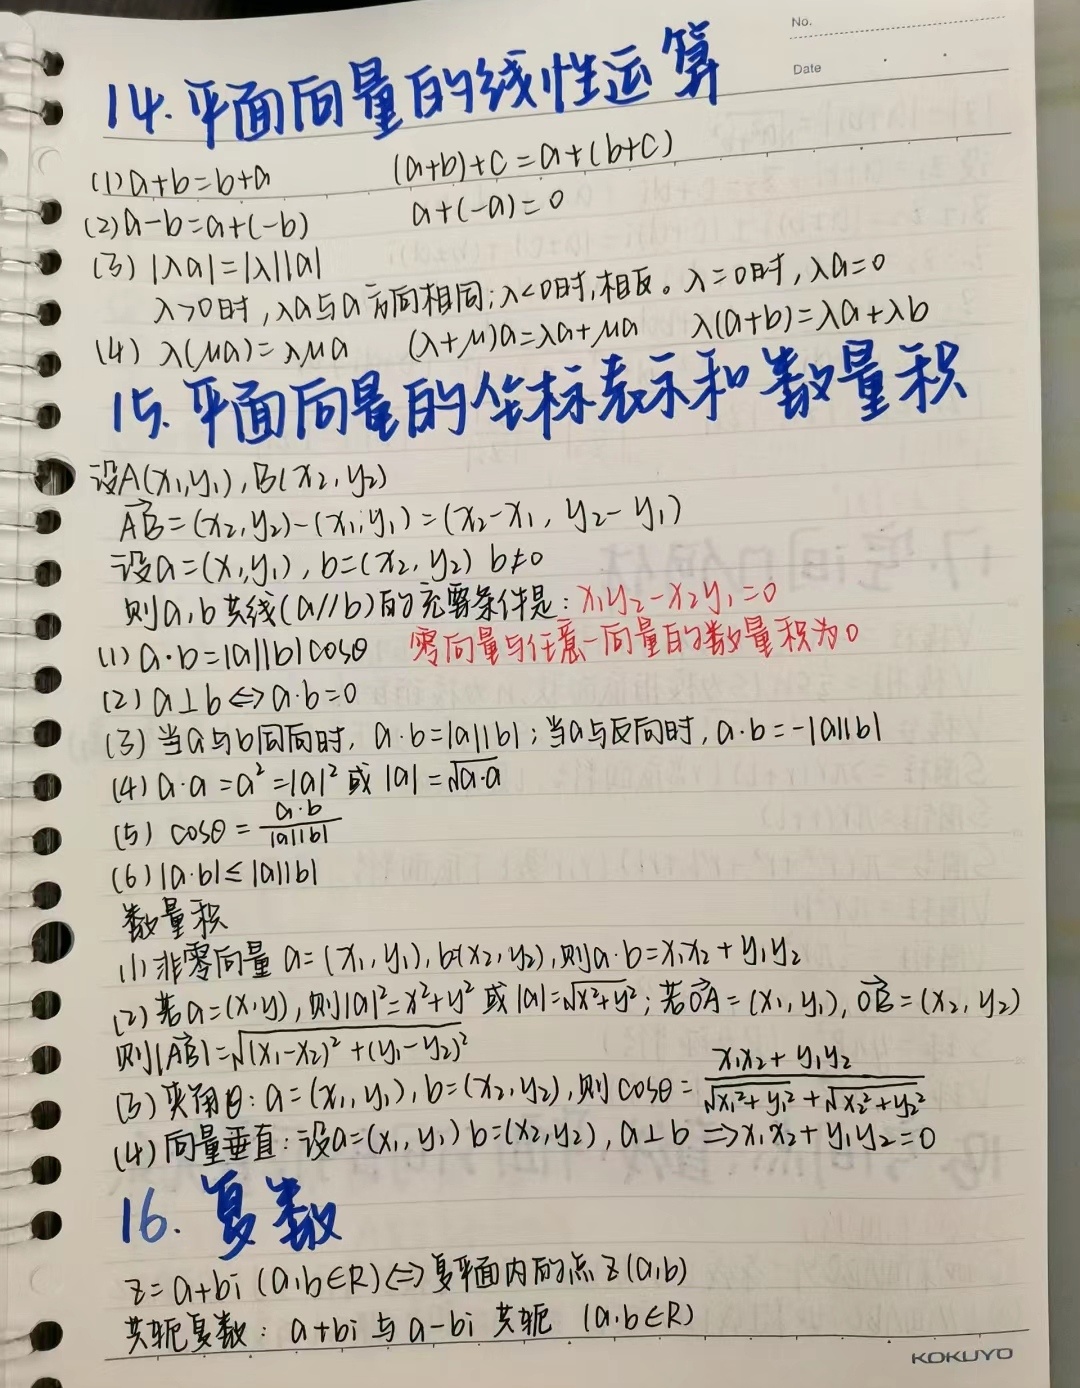 No.
Date
14.平面向量的线性运算
(1)a+b=b+a (a+b)+c=a+(b+c)
(2)a-b=a+(-b) a+(-a)=0
(3) |λa|=|λ||a|
λ>0时,λa与a方向相同;λ<0时,相反。λ=0时,λa=0
(4) λ(μa)=λμa (λ+μ)a=λa+μa λ(a+b)=λa+λb
15.平面向量的坐标表示和数量积
设A(x₁,y₁),B(x₂,y₂)
AB=(x₂,y₂)-(x₁,y₁)=(x₂-x₁, y₂-y₁)
设a=(x₁,y₁), b=(x₂,y₂) b≠0
则a,b共线(a//b)的充要条件是:x₁y₂-x₂y₁=0
(1) a·b=|a||b|cosθ 零向量与任意一向量的数量积为0
(2) a⊥b⇔a·b=0
(3) 当a与b同向时, a·b=|a||b|;当a与反向时,a·b=-|a||b|
(4) a·a=a²=|a|²或|a|=√a·a
(5) cosθ=a·b/|a||b|
(6)|a·b|≤|a||b|
数量积
(1)非零向量 a=(x₁,y₁),b(x₂,y₂),则a·b=x₁x₂+y₁y₂
(2)若a=(x,y),则|a|²=x²+y²或|a|=√x²+y²;若OA=(x₁,y₁),OB=(x₂,y₂)
则|AB|=√(x₁-x₂)²+(y₁-y₂)²
(3)夹角θ:a=(x₁,y₁),b=(x₂,y₂),则cosθ=x₁x₂+y₁y₂/√x₁²+y₁²+√x₂²+y₂²
(4)向量垂直:设a=(x₁,y₁) b=(x₂,y₂),a⊥b⇒x₁x₂+y₁y₂=0
16.复数
z=a+bi (a,b∈R)⇔复平面内的点z(a,b)
共轭复数: a+bi与a-bi共轭 (a,b∈R)
KOKUYO